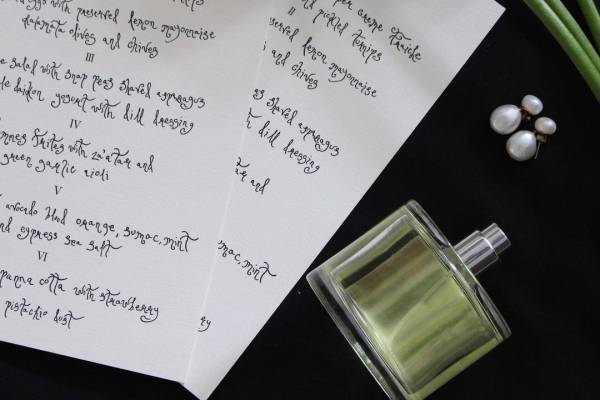 ggs with preserved lemon mayonnaise
kalamata olives and chives
III
e salad with snap peas shaved asparagus
daikon yogurt with dill dressing
IV
frites with za'atar and
green garlic aioli
V
avocado blood orange, sumac, mint
nd cypress sea salt
VI
panna cotta with strawberry
pistachio dust
per creme fraiche
II
nd pickled turnips
served lemon mayonnaise
and chives
as shaved asparagus
h dill dressing
tar and
mac, mint
ry